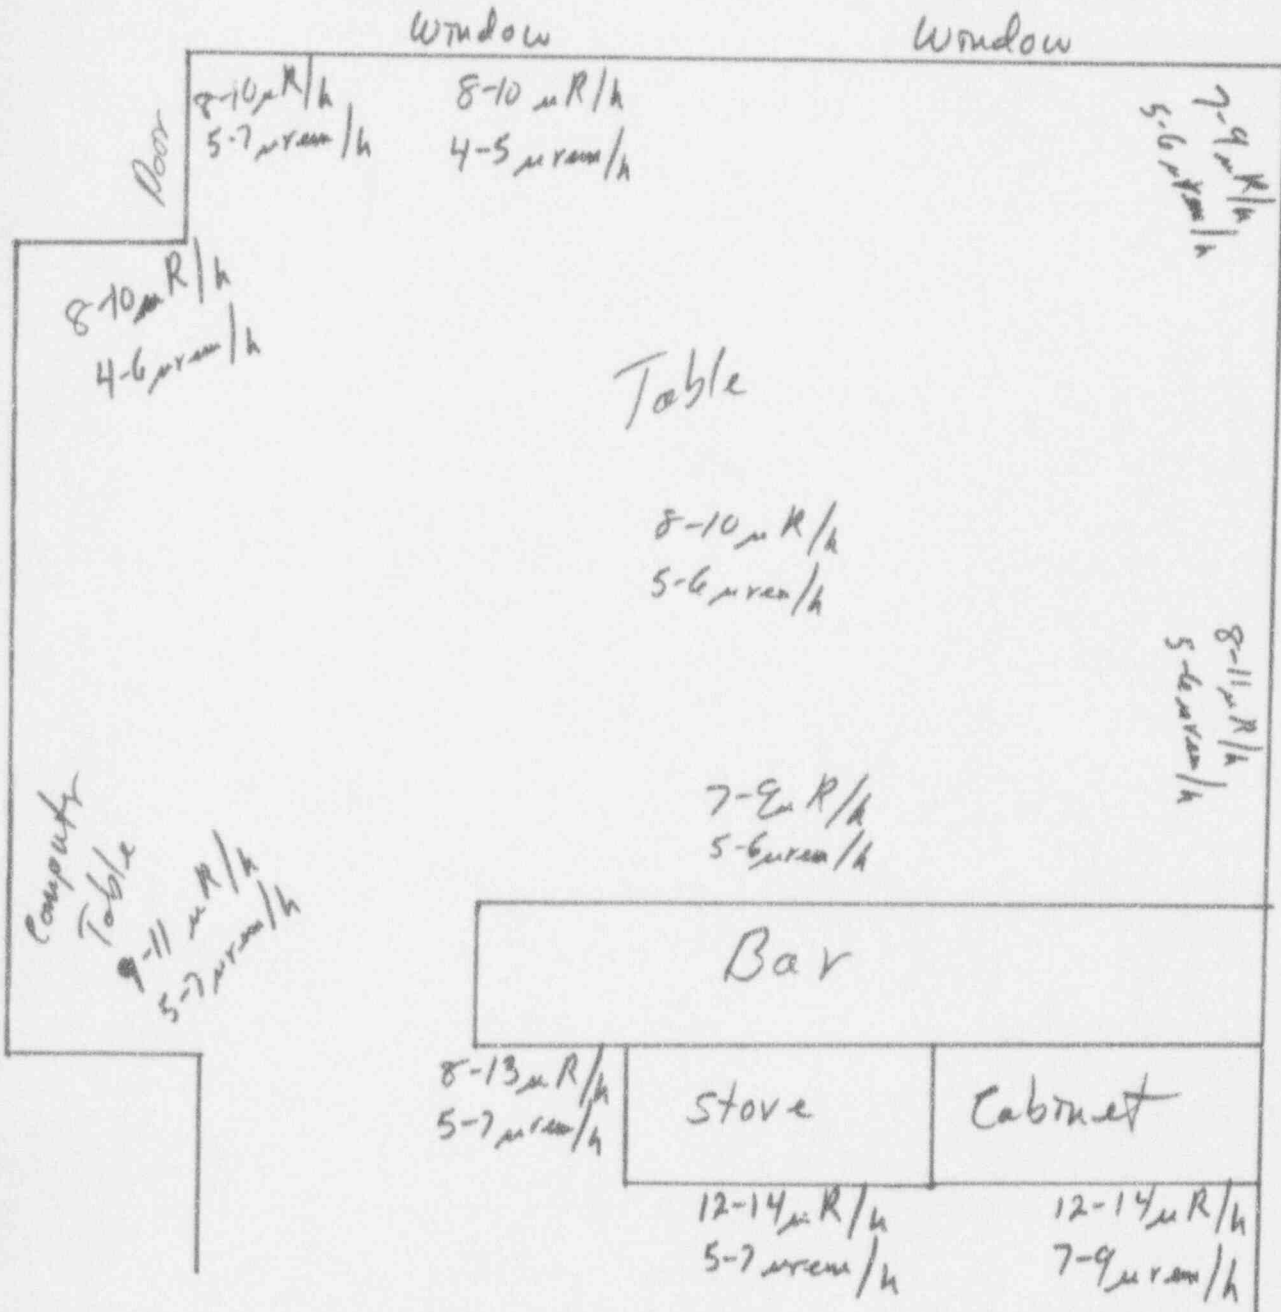 Window
Window
Door
8-10 μR/h
5-7 μrem/h
8-10 μR/h
4-5 μrem/h
7-9 μR/h
5-6 μrem/h
8-10 μR/h
4-6 μrem/h
Table
8-10 μR/h
5-6 μrem/h
8-11 μR/h
5-6 μrem/h
7-9μ R/h
5-6 μrem/h
Computer
Table
9-11 μR/h
5-7 μrem/h
Bar
8-13 μR/h
5-7 μrem/h
Stove
Cabinet
12-14 μR/h
5-7 μrem/h
12-14 μR/h
7-9 μrem/h